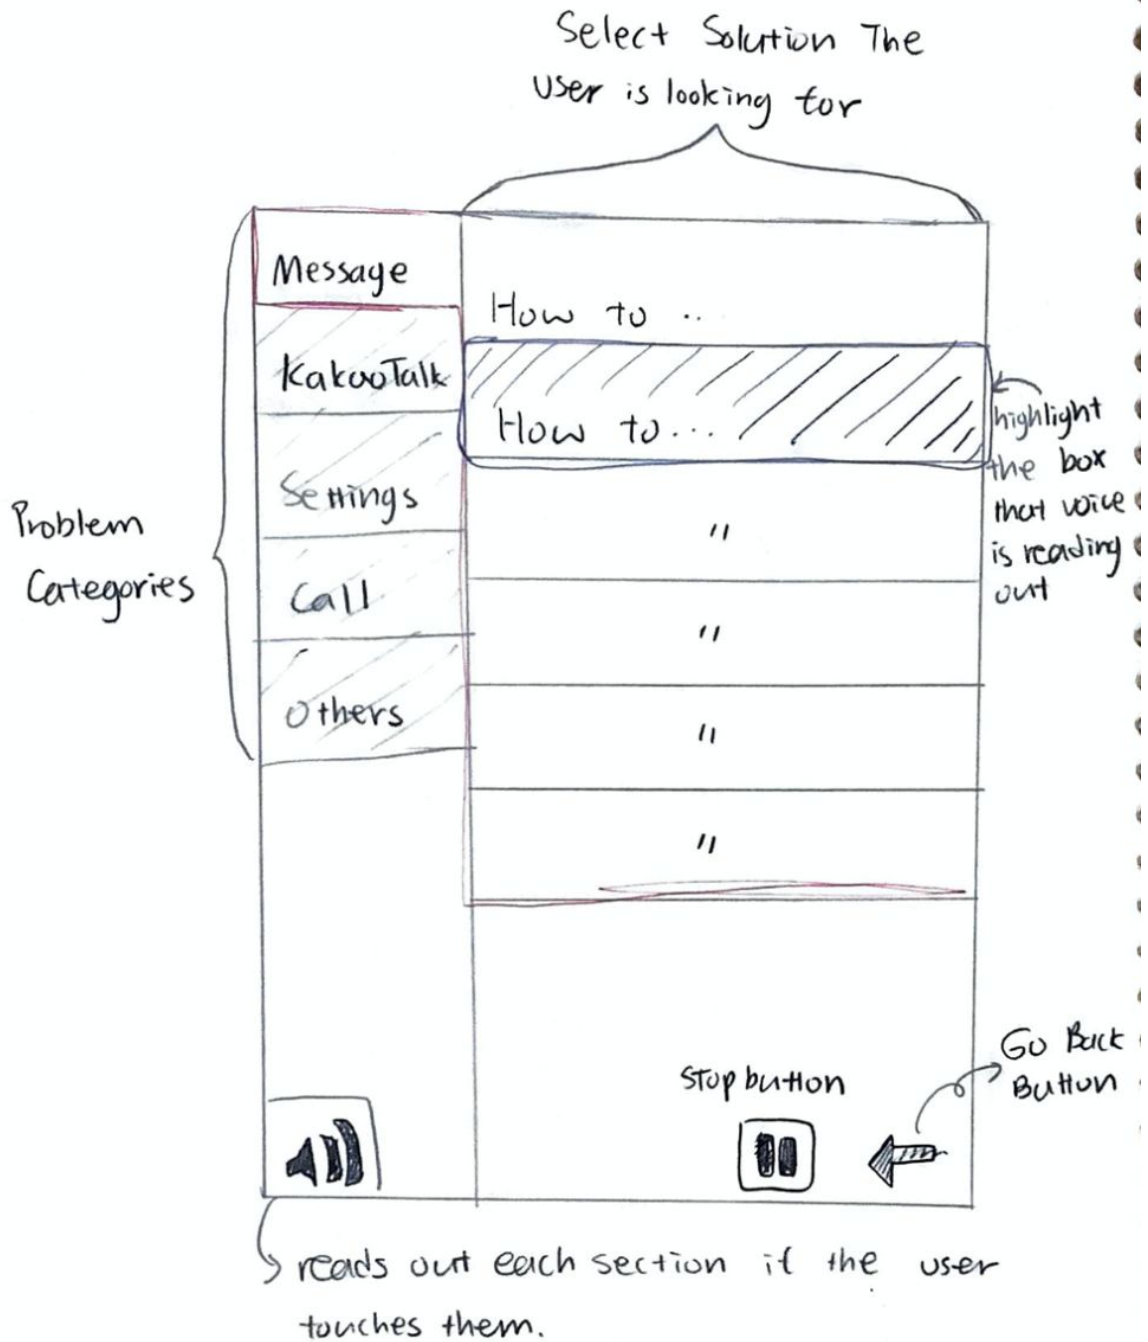 Select Solution The
user is looking for
Problem
Categories
Message
KakaoTalk
Settings
Call
Others
How to ..
How to...
"
"
"
"
highlight
the box
that voice
is reading
out
Stop button
Go Back
Button
reads out each section if the user
touches them.